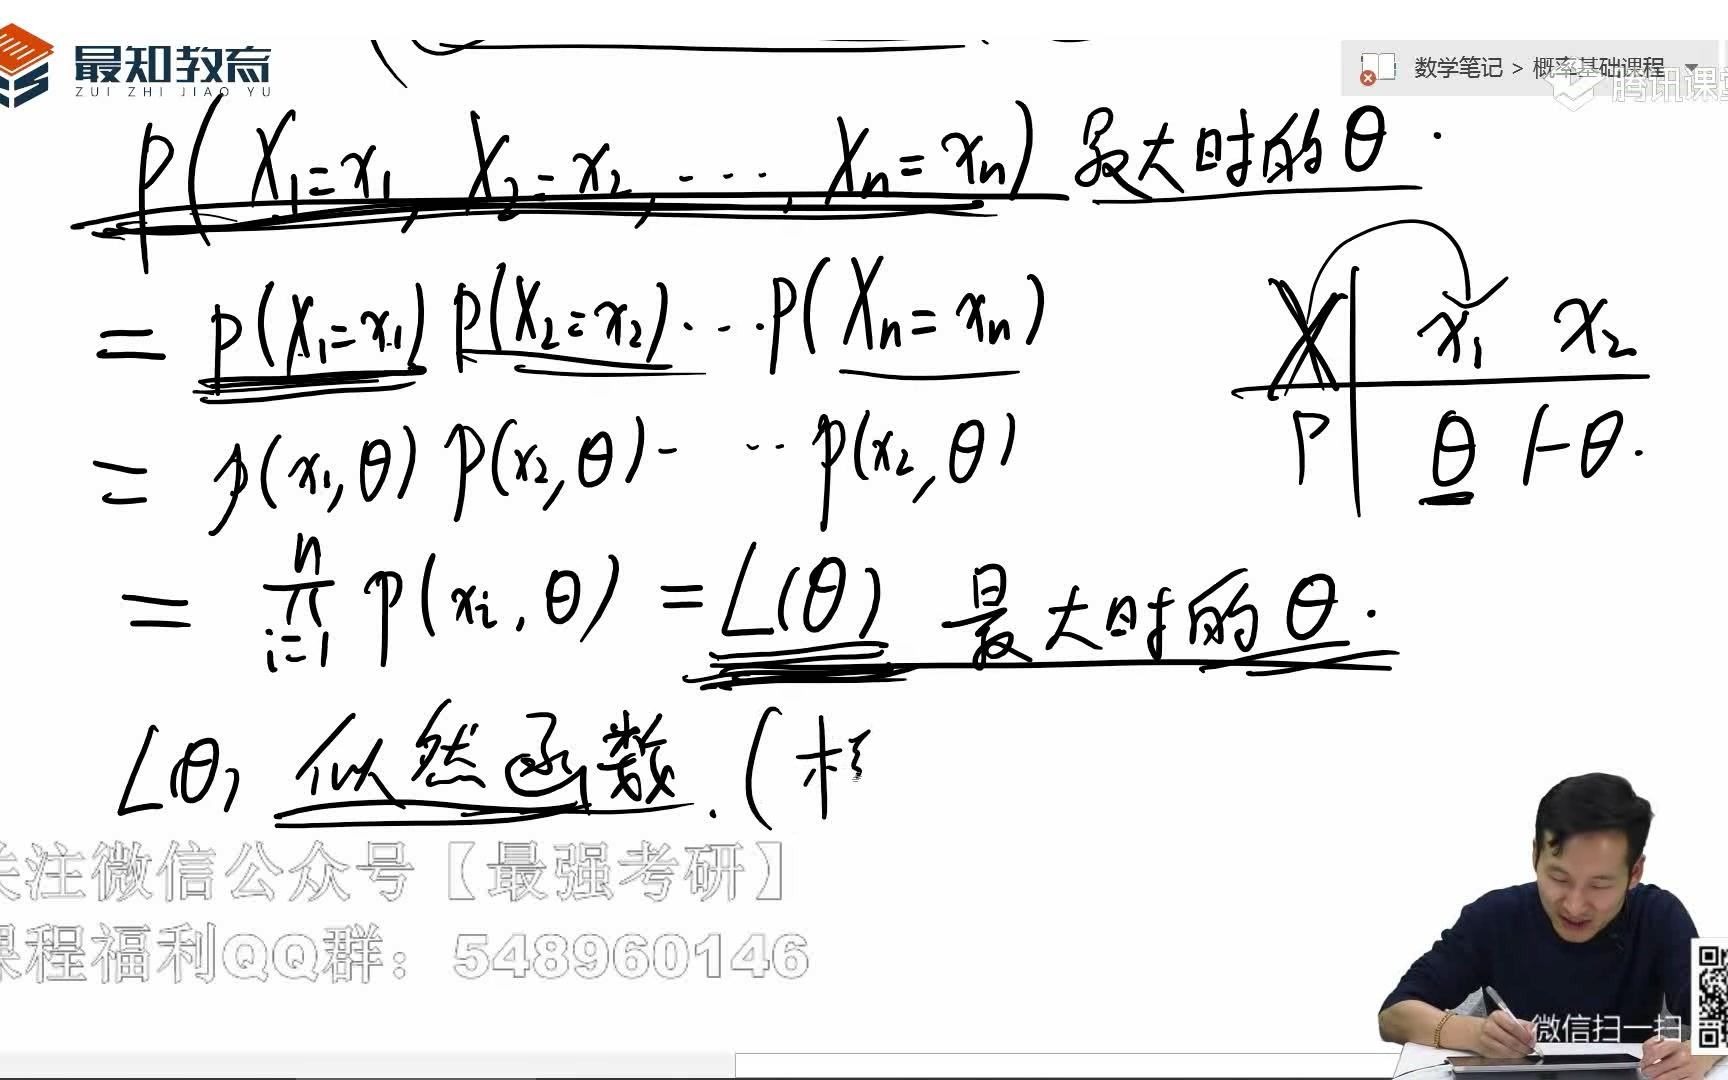 最知教育
ZUI ZHI JIAO YU
数学笔记 > 概率基础课程
腾讯课堂
P(X₁=x₁, X₂=x₂, ... Xₙ=xₙ) 最大时的θ.
= P(X₁=x₁) P(X₂=x₂)...P(Xₙ=xₙ)
X | x₁ x₂
P | θ 1-θ.
= p(x₁,θ) p(x₂,θ)- ... p(x₂,θ)
= n π i=1 p(xᵢ,θ) = L(θ) 最大时的θ.
L(θ) 似然函数. (
关注微信公众号【最强考研】
课程福利QQ群：548960146
微信扫一扫